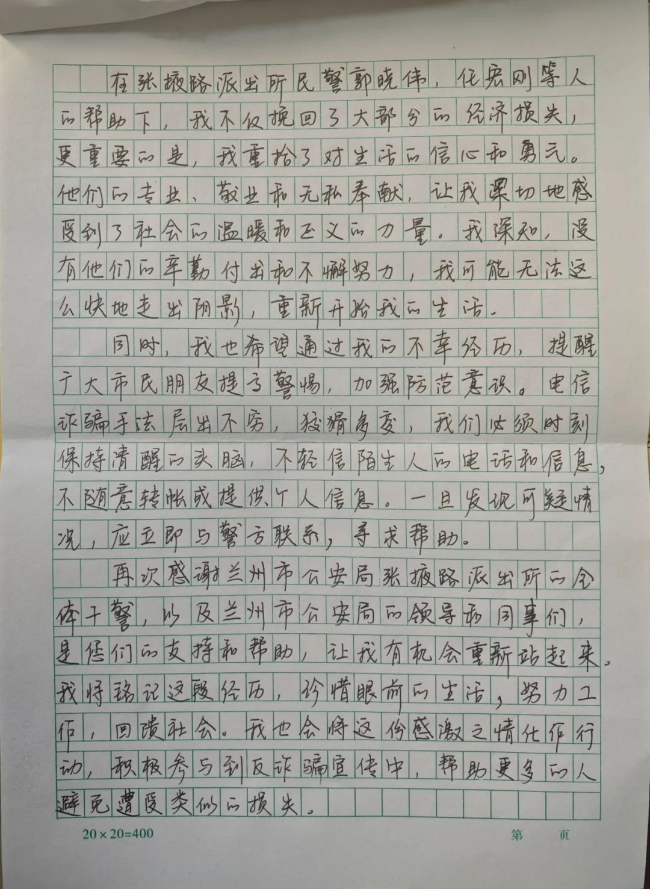 在张掖路派出所民警郭晓伟，任宏刚等人
的帮助下，我不仅挽回了大部分的经济损失，
更重要的是，我重拾了对生活的信心和勇气。
他们的专业、敬业和无私奉献，让我深切地感
受到了社会的温暖和正义的力量。我深知，没
有他们的辛勤付出和不懈努力，我可能无法这
么快地走出阴影，重新开始我的生活。
同时，我也希望通过我的不幸经历，提醒
广大市民朋友提高警惕，加强防范意识。电信
诈骗手法层出不穷，狡猾多变，我们必须时刻
保持清醒的头脑，不轻信陌生人的电话和信息，
不随意转帐或提供个人信息。一旦发现可疑情
况，应立即与警方联系，寻求帮助。
再次感谢兰州市公安局张掖路派出所的全
体干警，以及兰州市公安局的领导和同事们，
是您们的支持和帮助，让我有机会重新站起来。
我将铭记这段经历，珍惜眼前的生活，努力工
作，回馈社会。我也会将这份感激之情化作行
动，积极参与到反诈骗宣传中，帮助更多的人
避免遭受类似的损失。
20×20=400 第 页